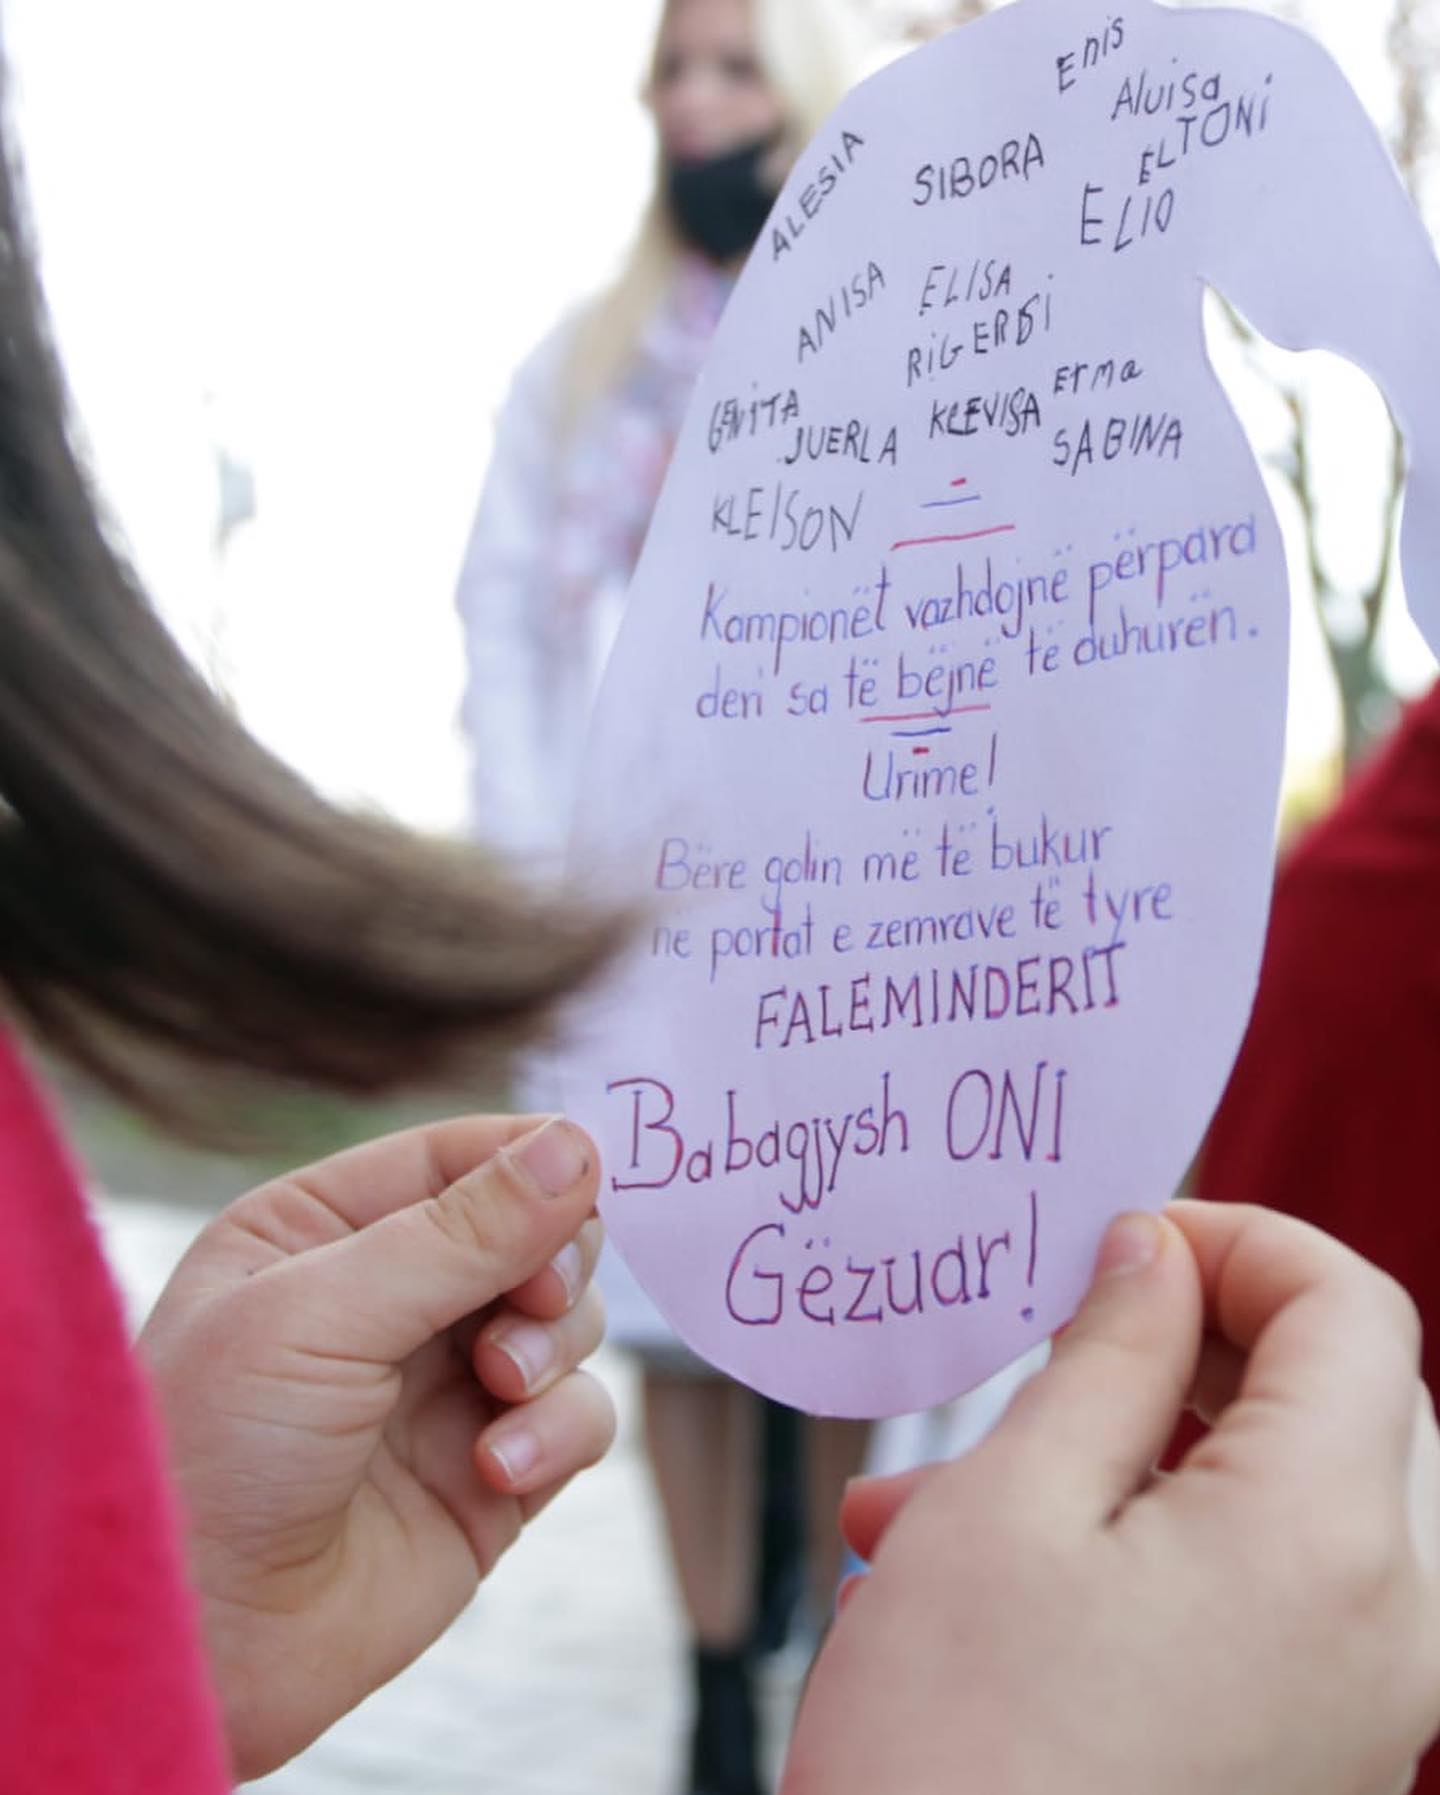 Enis
Aluisa
ELTONi
ALESIA
SIBORA
ELIO
ANISA
ELISA
RiGERDi
GENiTA
JUERLA
KLEVISA
Erma
SABINA
KLEISON
Kampionët vazhdojnë përpara
deri sa të bëjnë të duhurën.
Urime!
Bëre golin më të bukur
në portat e zemrave të tyre
FALEMINDERIT
Babagjysh ONI
Gëzuar!